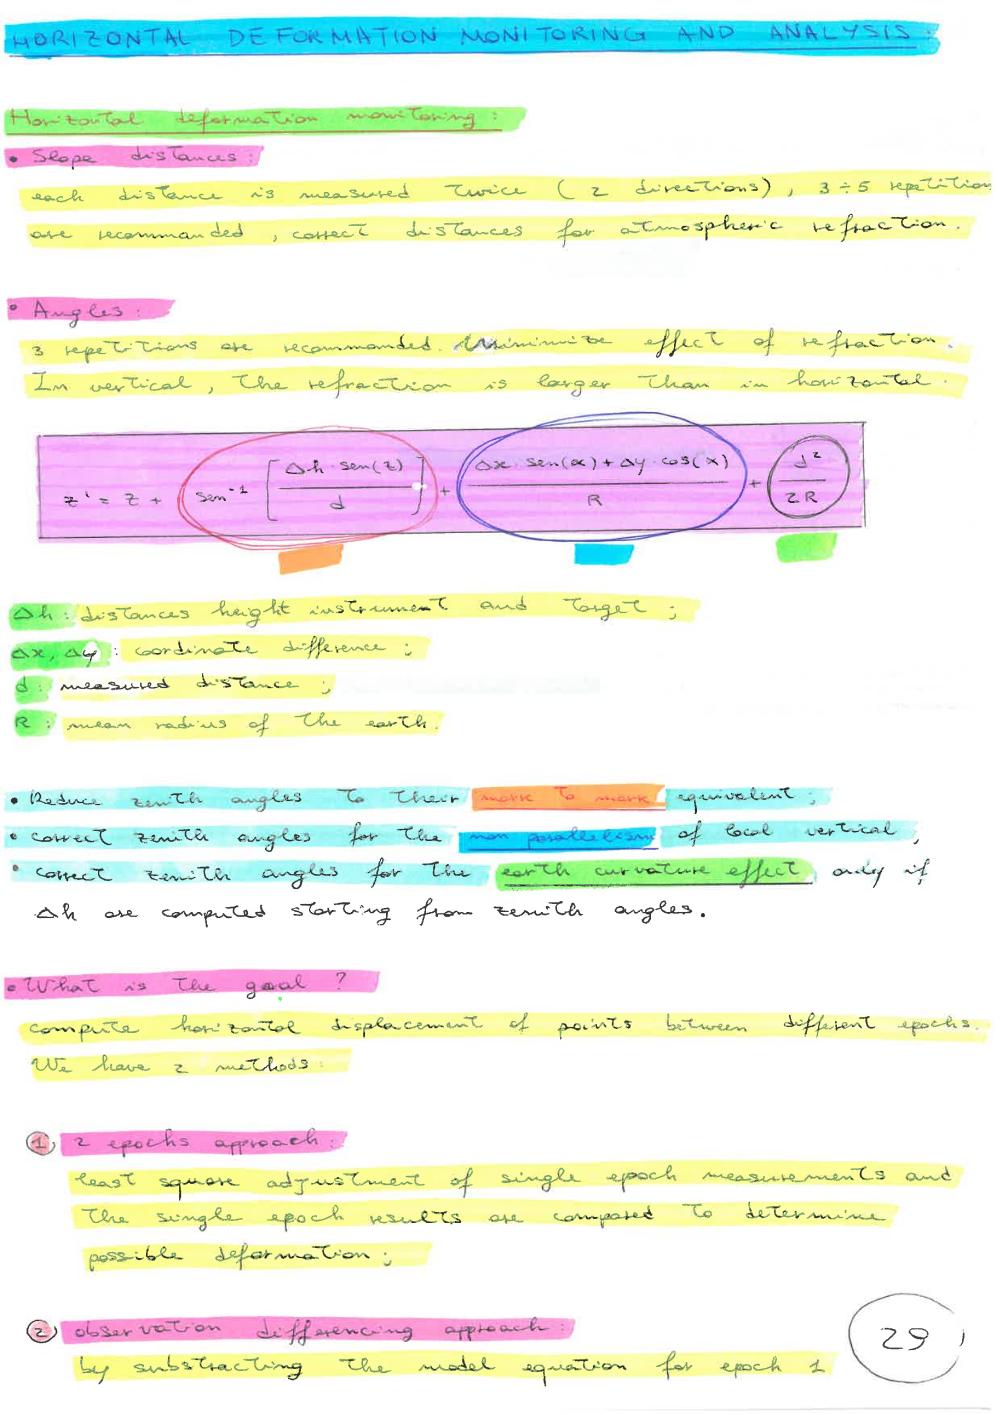 HORIZONTAL DEFORMATION MONITORING AND ANALYSIS:
Horizontal deformation monitoring:
• Slope distances:
each distance is measured twice (2 directions), 3÷5 repetition
are recommanded, correct distances for atmospheric refraction.
• Angles:
3 repetitions are recommanded. Minimize effect of refraction.
In vertical, the refraction is larger than in horizontal.
z' = z + sen⁻¹ [Δh · sen(z) / d] + Δx · sen(α) + Δy · cos(α) / R + d² / 2R
Δh: distances height instrument and target;
Δx, Δy: coordinate difference;
d: measured distance;
R: mean radius of the earth.
• Reduce zenith angles to their mark to mark equivalent;
• correct zenith angles for the non parallelism of local vertical;
• correct zenith angles for the earth curvature effect only if
Δh are computed starting from zenith angles.
• What is the goal?
compute horizontal displacement of points between different epochs.
We have 2 methods:
① 2 epochs approach:
least square adjustment of single epoch measurements and
the single epoch results are compared to determine
possible deformation;
② observation differencing approach:
by substracting the model equation for epoch 1
29